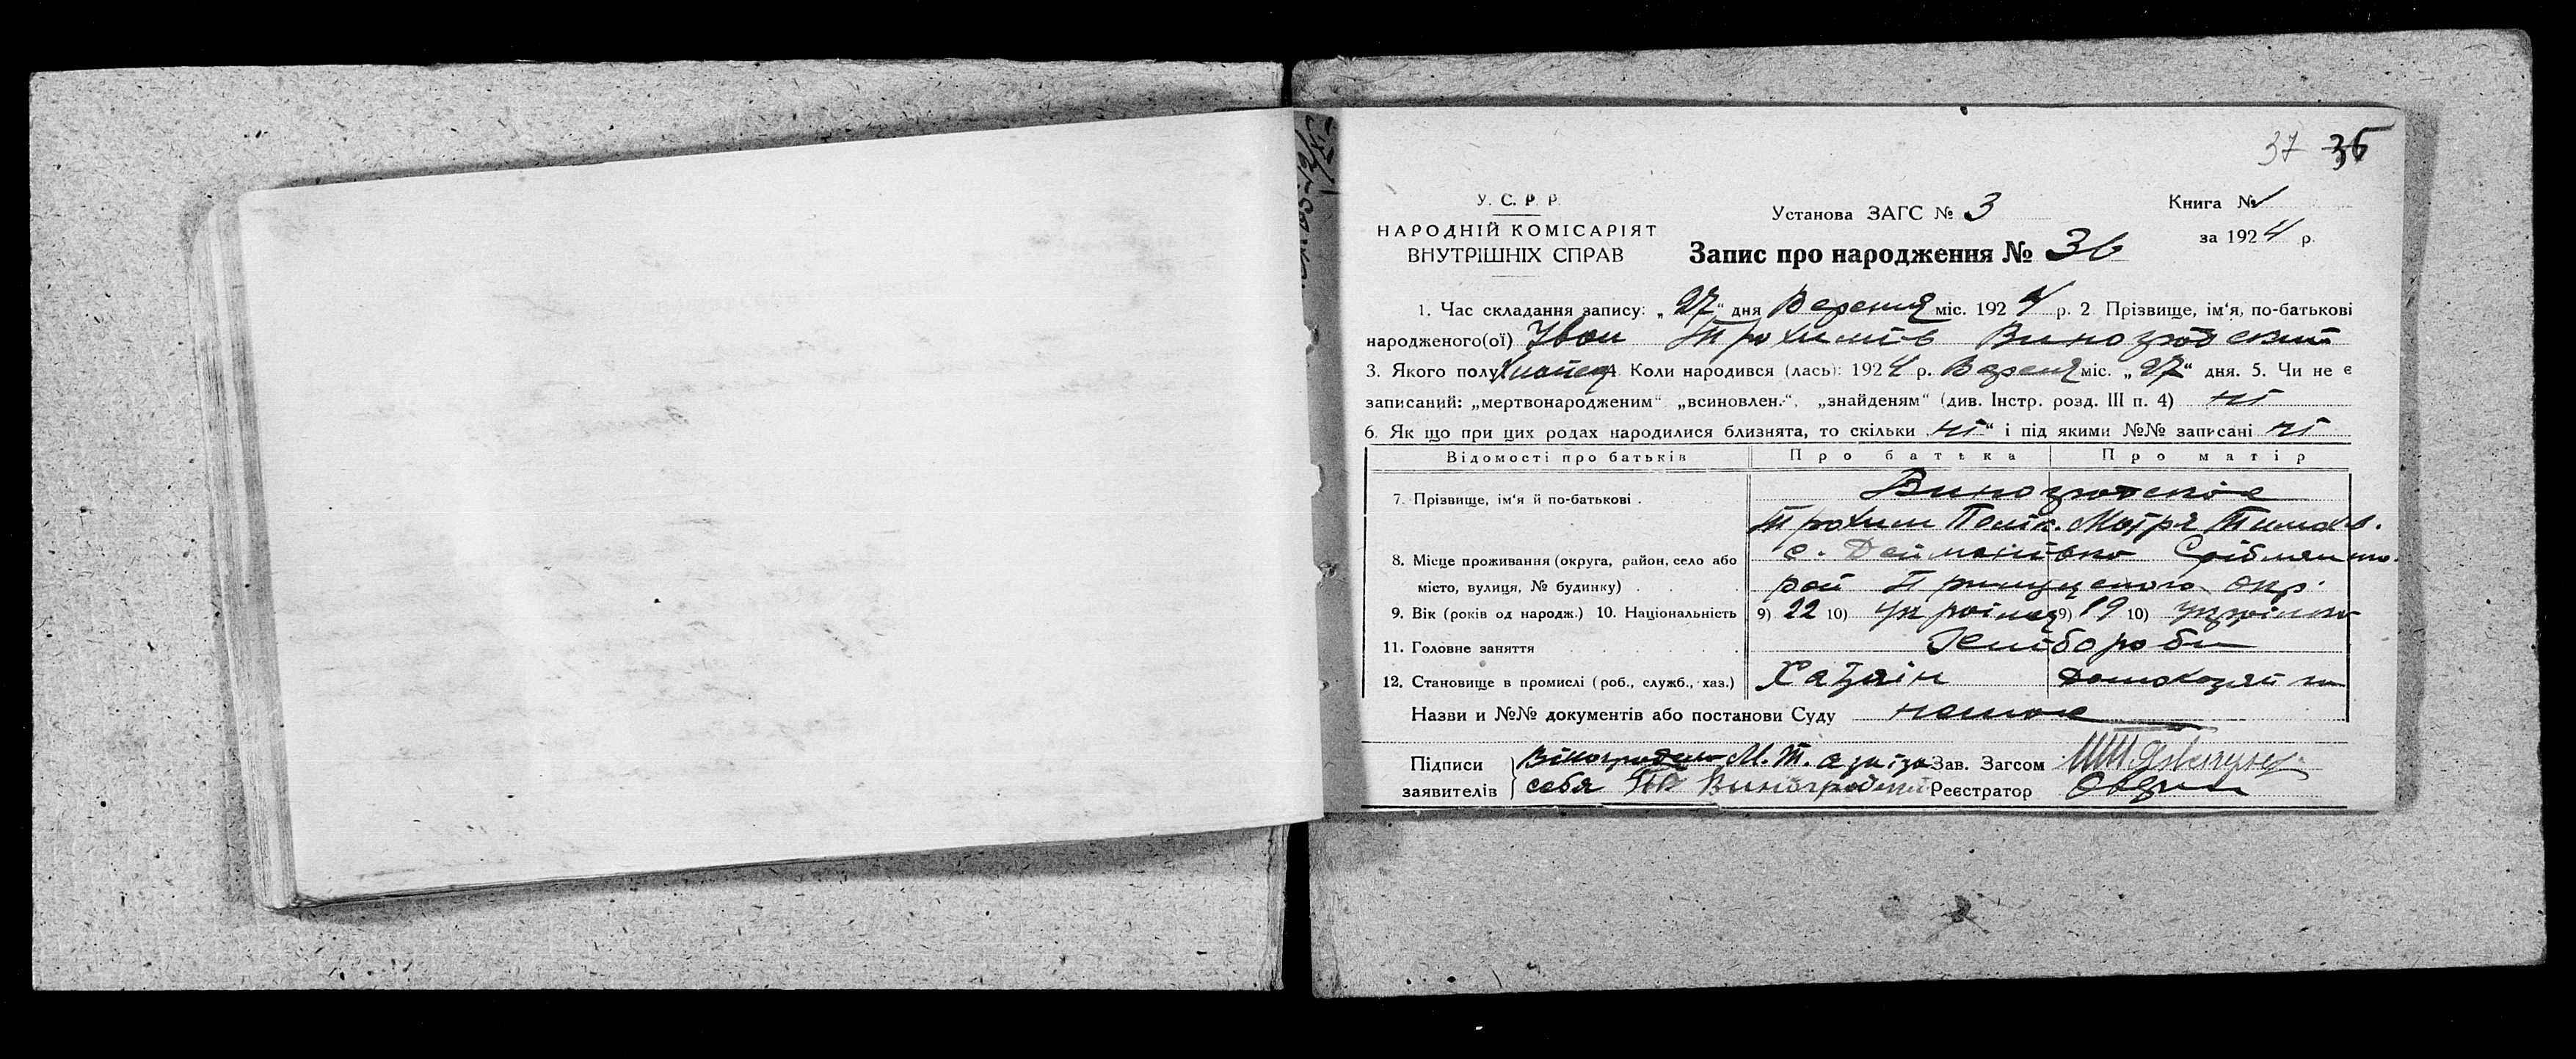 37 36
У. С. Р. Р.
НАРОДНІЙ КОМІСАРІЯТ
ВНУТРІШНІХ СПРАВ
Установа ЗАГС № 3
Книга № 1
за 1924 р.
Запис про народження № 36
1. Час складання запису: „27“ дня Вересня міс. 1924 р. 2 Прізвище, ім'я, по-батькові
народженого(ої) Іван Трохимів Виногродский
3. Якого полу Хлопец 4. Коли народився (лась): 1924 р. Вересня міс. „27“ дня. 5. Чи не є
записаний: „мертвонародженим“ „всиновлен.“, „знайденям“ (див. Інстр. розд. III п. 4) ні
6. Як що при цих родах народилися близнята, то скільки „ні“ і під якими №№ записані ні
Відомості про батьків Про батька Про матір
7. Прізвище, ім'я й по-батькові . Виногродскіе
Трохим Мотря Тимох.
8. Місце проживання (округа, район, село або с. Дейманівка
місто, вулиця, № будинку) . рай Прилуцького окр.
9. Вік (років од народж.) 10. Національність 9) 22 10) Українец 9) 19 10) українка
11. Головне заняття Хлібороби
12. Становище в промислі (роб., служб., хаз.) Хазяін Домохазяйка
Назви и №№ документів або постанови Суду немає
Підписи М. Т. а за Зав. Загсом
заявителів себя Виногродский Реєстратор